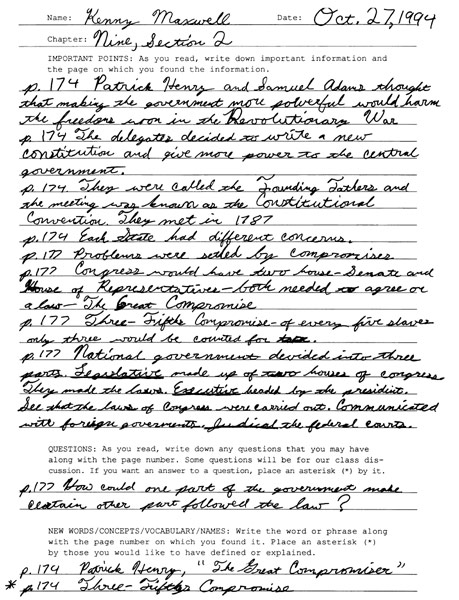 Name: Kenny Maxwell Date: Oct. 27, 1994
Chapter: Nine, Section 2
IMPORTANT POINTS: As you read, write down important information and
the page on which you found the information.
p. 174 Patrick Henry and Samuel Adams thought
that making the government more powerful would harm
the freedoms won in the Revolutionary War
p. 174 The delegates decided to write a new
constitution and give more power to the central
government.
p. 174 They were called the Founding Fathers and
the meeting was known as the Constitutional
Convention. They met in 1787
p. 174 Each State had different concerns.
p. 177 Problems were setled by compromises.
p. 177 Congress would have two house - Senate and
House of Representatives - both needed to agree on
a law - The Great Compromise
p. 177 Three-Fifths Compromise - of every five slaves
only three would be counted for
p. 177 National government devided into three
parts. Legislative made up of two houses of congress
They made the laws. Executive headed by the president.
See that the laws of Congress were carried out. Communicated
with foreign goverments. Judical the federal courts.
QUESTIONS: As you read, write down any questions that you may have
along with the page number. Some questions will be for our class dis-
cussion. If you want an answer to a question, place an asterisk (*) by it.
p. 177 How could one part of the government make
certain other part followed the law?
NEW WORDS/CONCEPTS/VOCABULARY/NAMES: Write the word or phrase along
with the page number on which you found it. Place an asterisk (*)
by those you would like to have defined or explained.
p. 174 Patrick Henry, "The Great Compromiser"
* p. 174 Three-Fifths Compromise